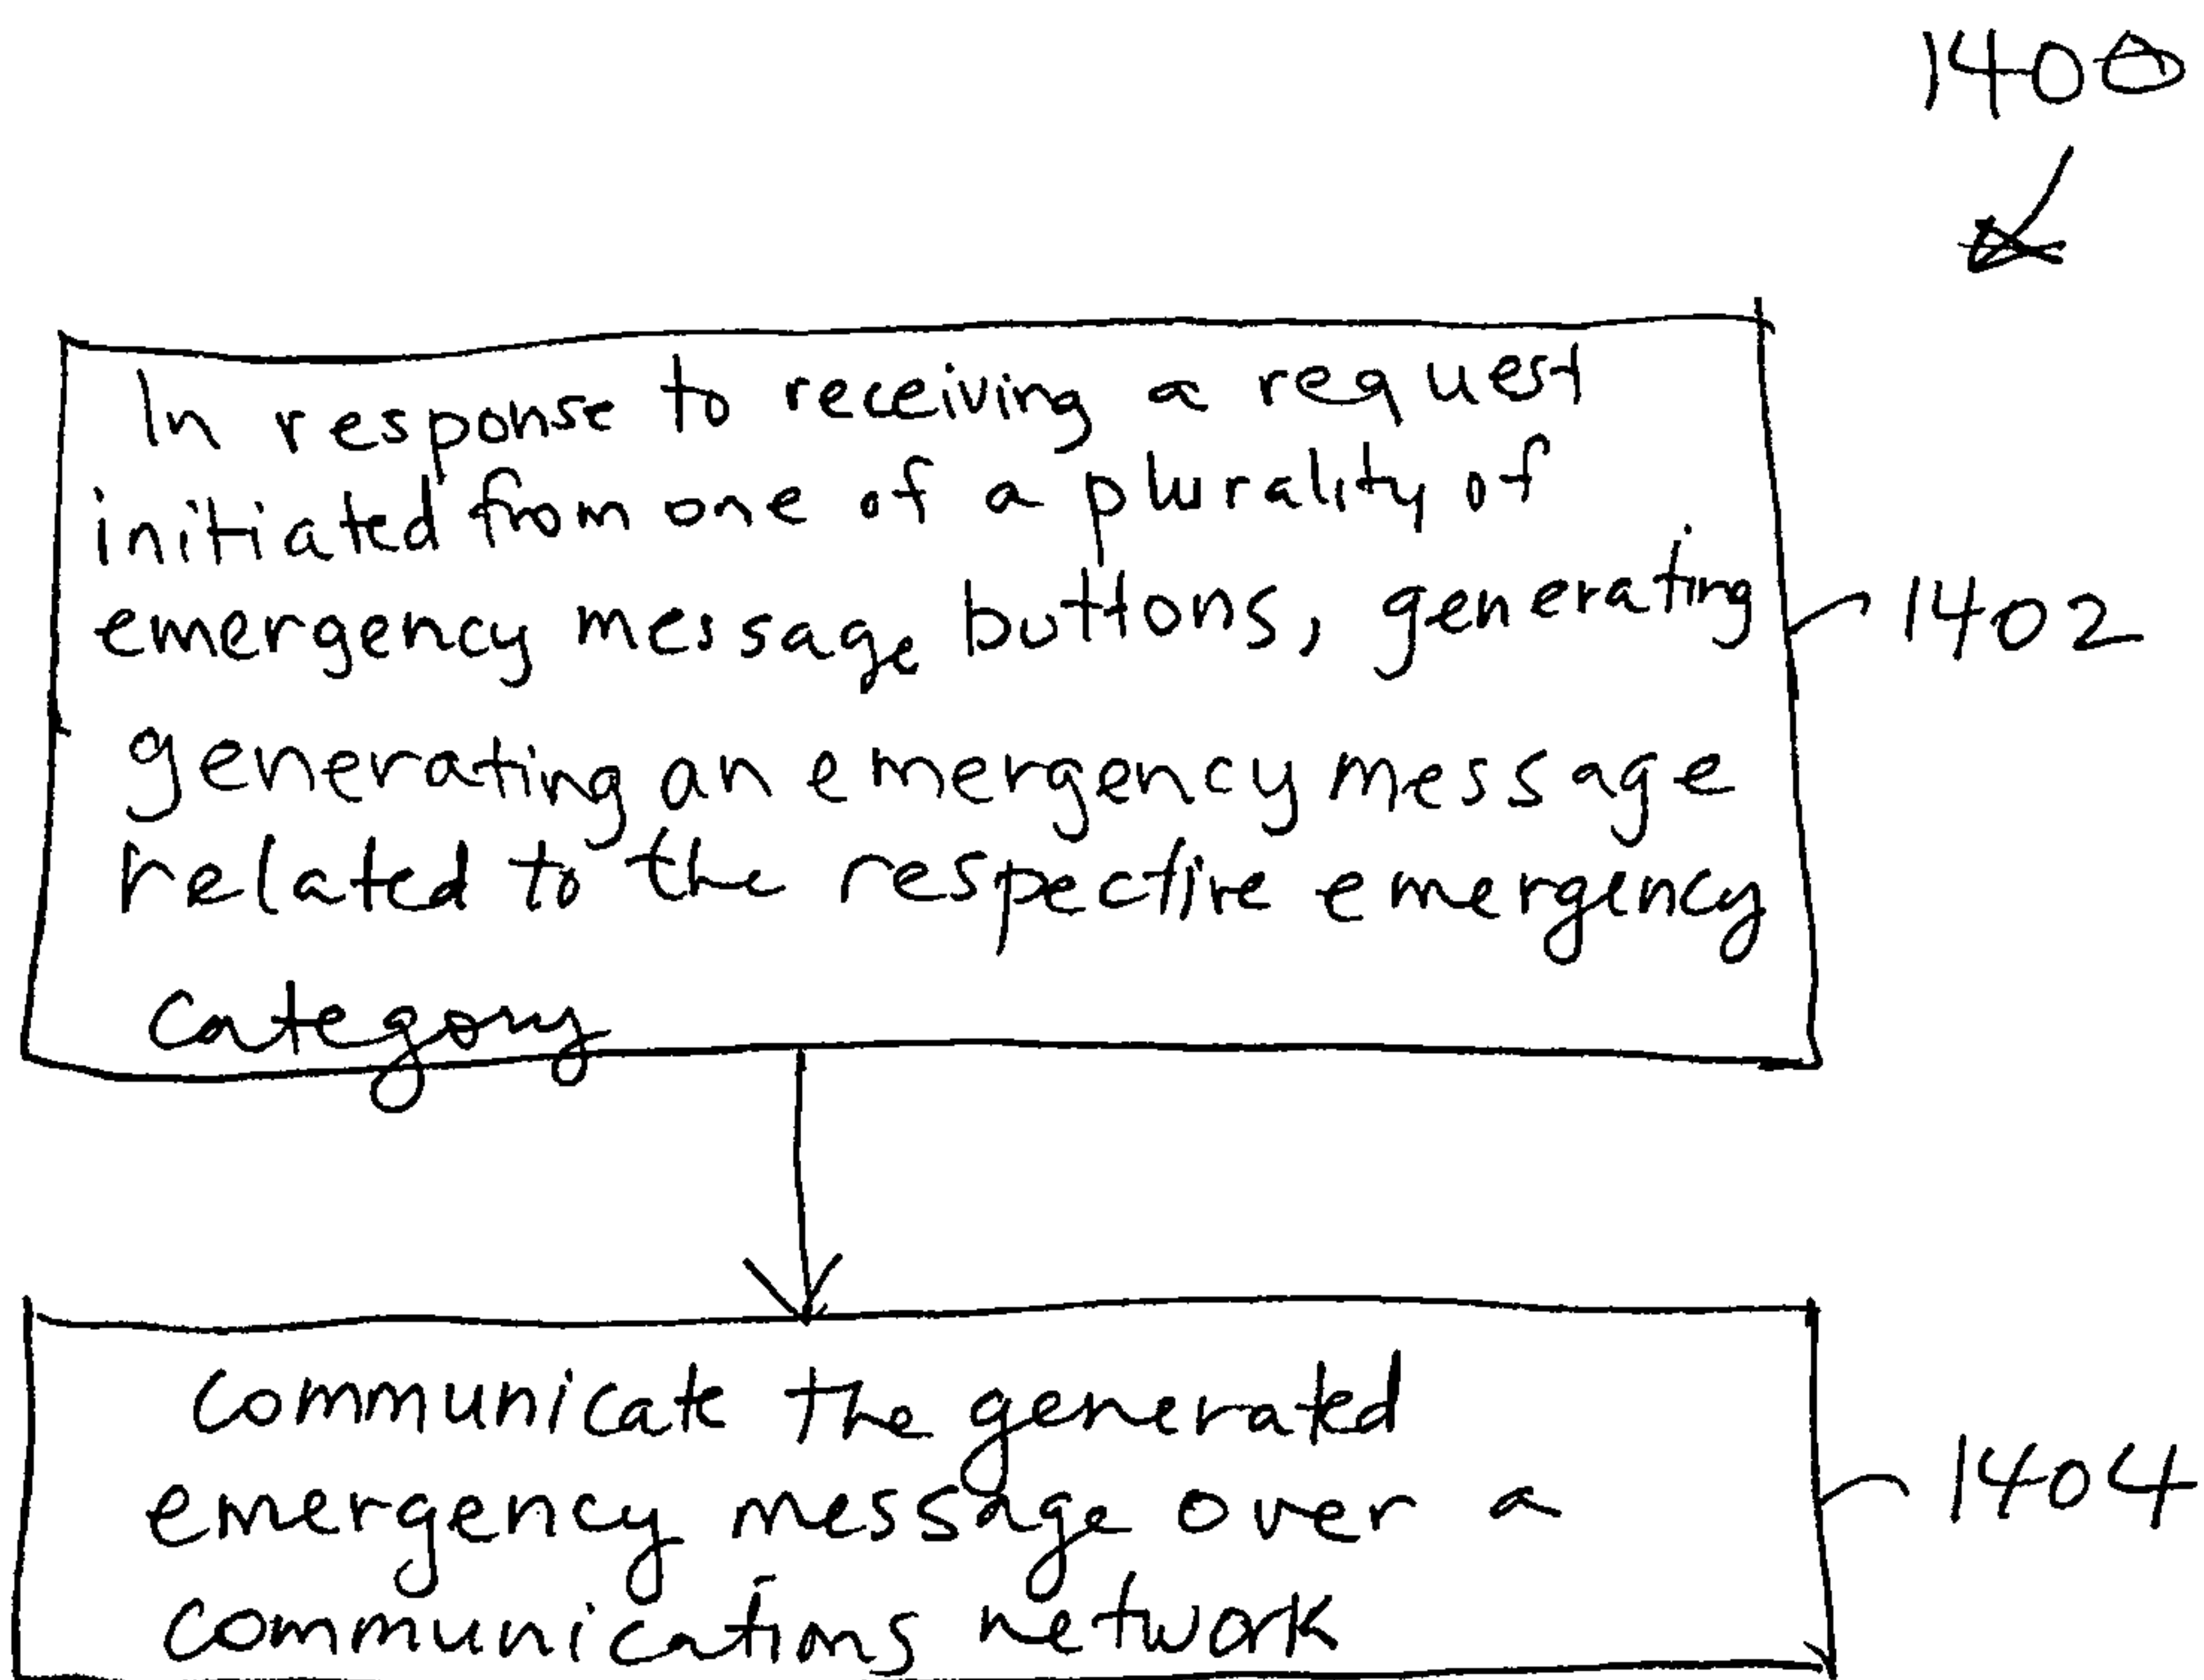 1400
In response to receiving a request
initiated from one of a plurality of
emergency message buttons, generating
1402
generating an emergency message
related to the respective emergency
category
communicate the generated
emergency message over a
1404
communications network